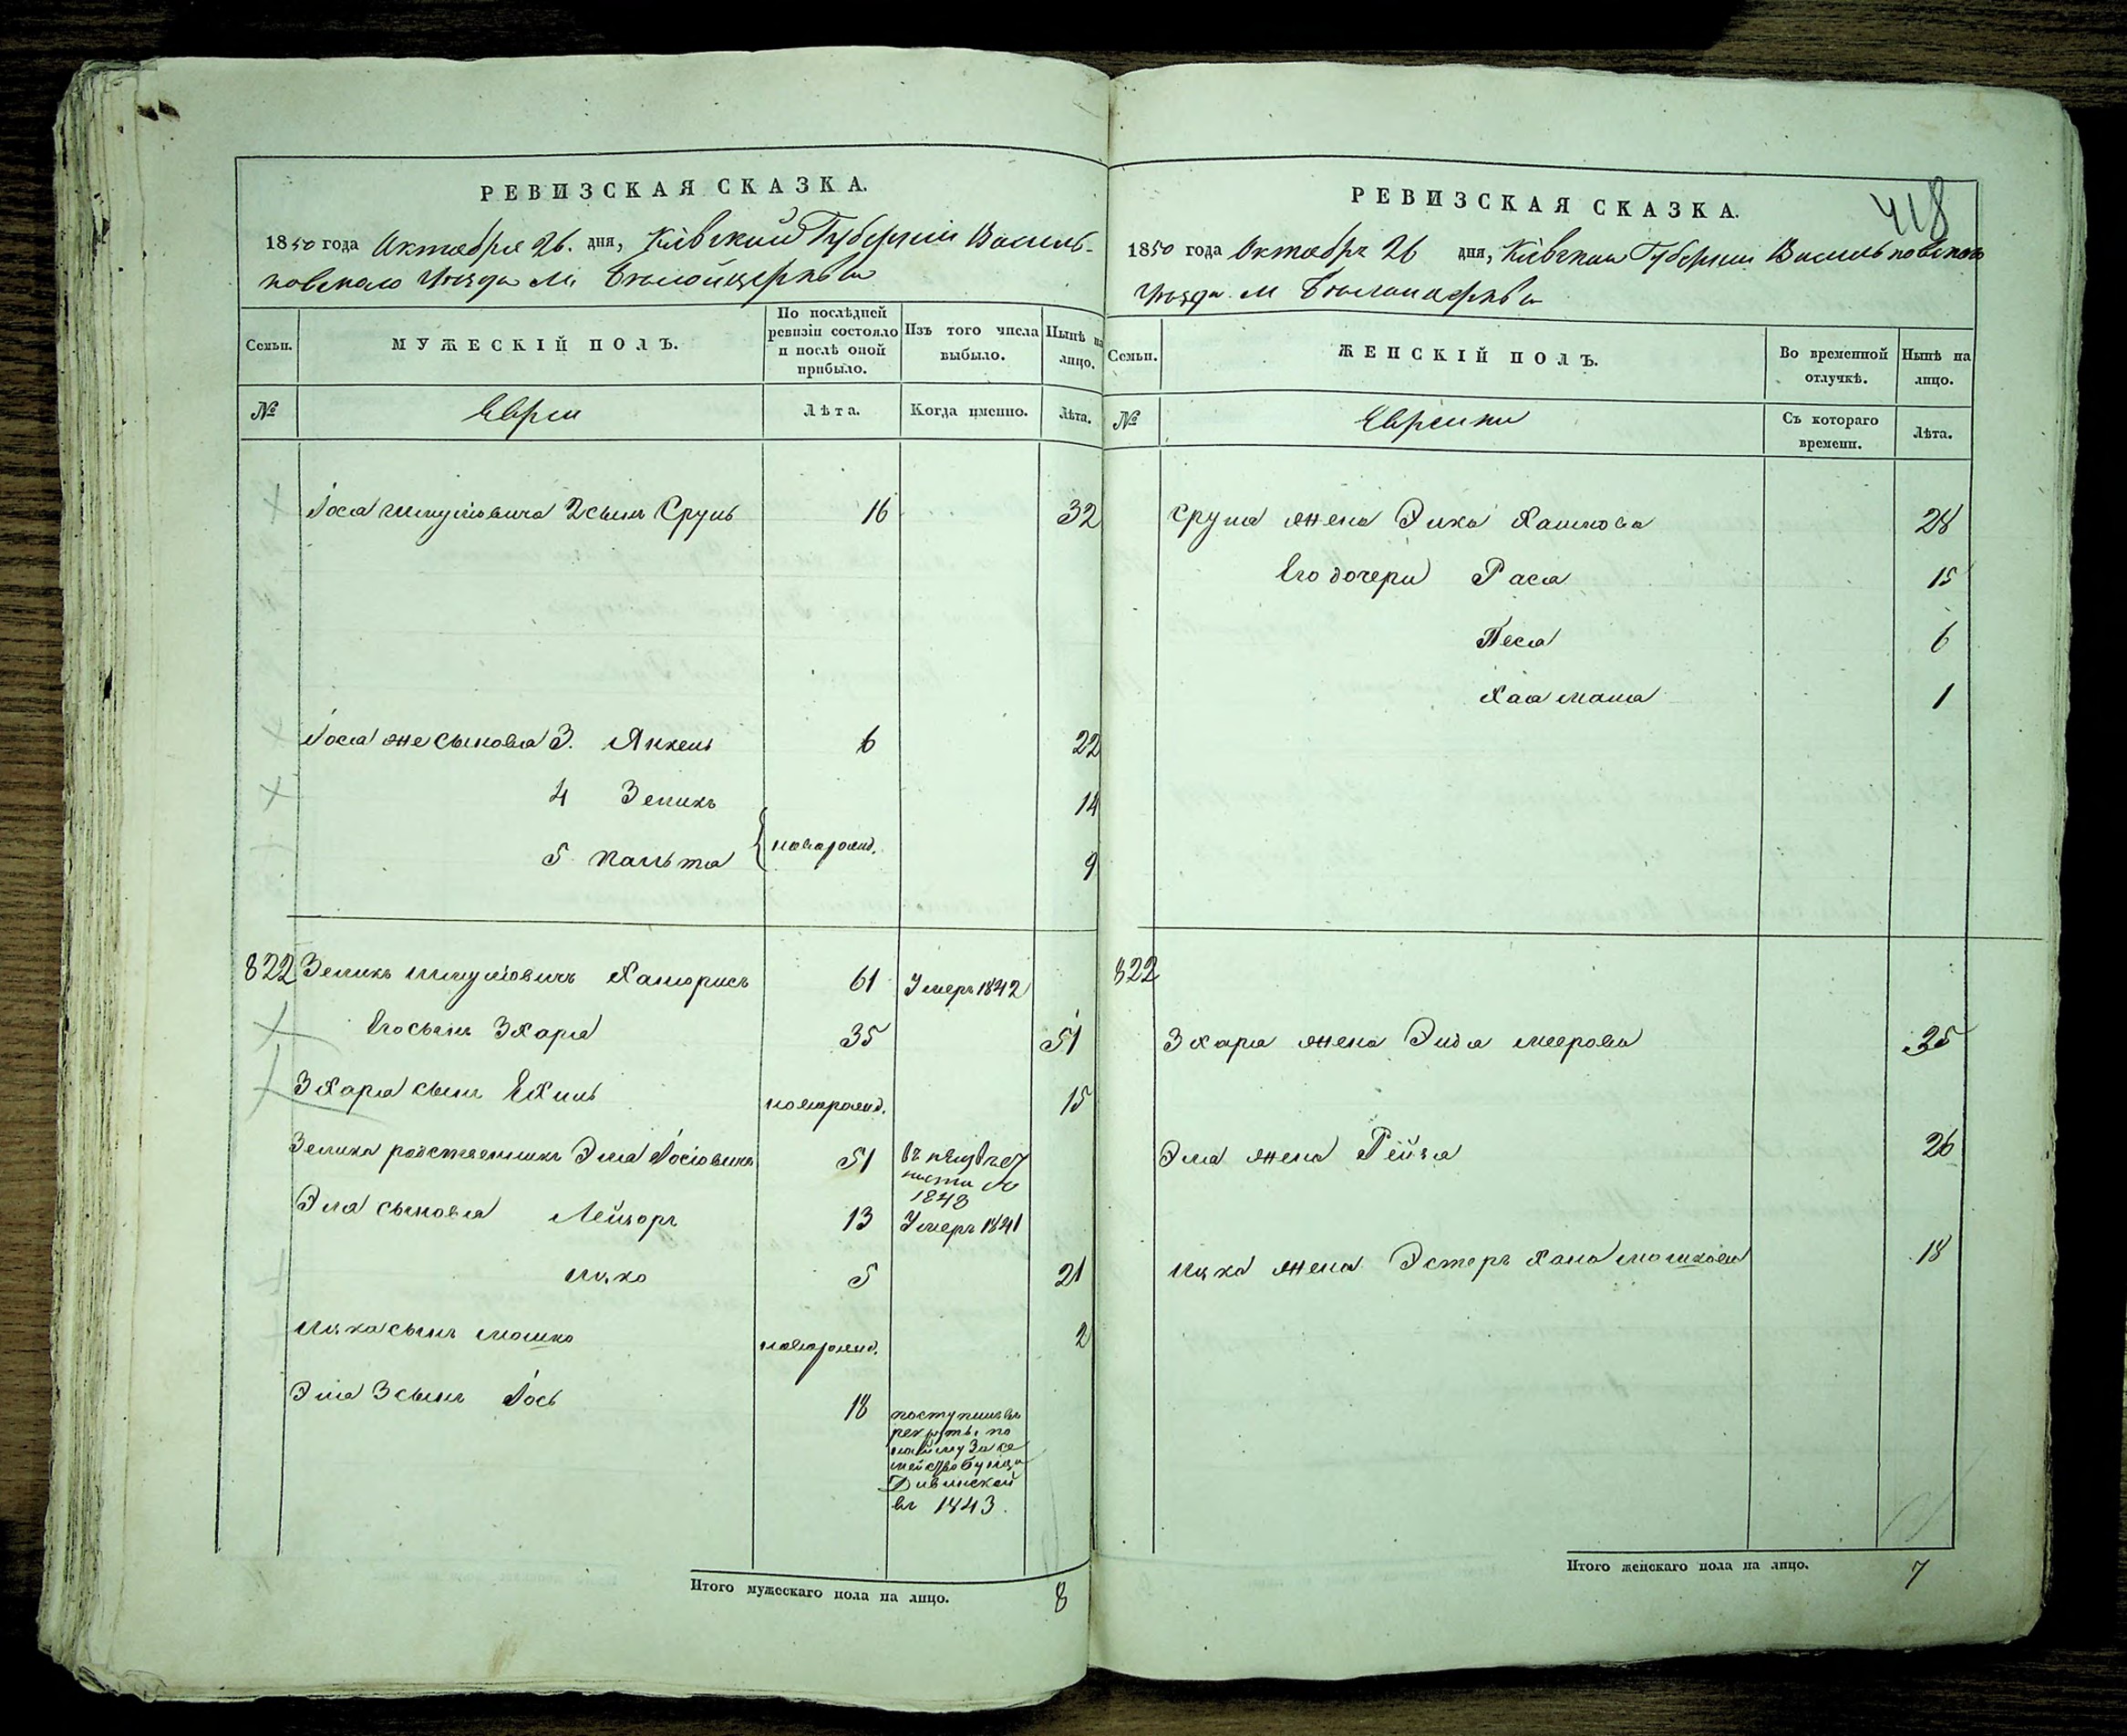 РЕВИЗСКАЯ СКАЗКА.
1850 года Октября 26. дня, Кіевской Губерніи Василь-
ковскаго Уезда М. Белойцеркви
Семьи.
МУЖЕСКІЙ ПОЛЪ.
По послѣдней ревизіи состояло и послѣ оной прибыло.
Изъ того числа выбыло.
Нынѣ на лицо.
№
Евреи
Лѣта.
Когда именно.
Лѣта.
Іося Шмулiовича 2 сынъ Сруль 16 32
Іося же сыновья 3. Янкель 6 22
4 Зеликъ 14
5 Пальта новорожд. 9
822 Зеликъ Шмулiовичъ Хаторисъ 61 Умеръ 1842
Его сынъ Зхарья 35 51
Зхарья сынъ Ехиль новорожд. 15
Зелика родственникъ Эля Іосіовичъ 51 въ неизвест
ности съ
1843
Эля сыновья Лейзоръ 13 Умеръ 1841
Ицко 5 21
Ицка сынъ Мошко новорожд. 2
Эля 3 сынъ Іось 18 поступилъ въ
рекруты по
найму за се
мейство
въ 1843.
Итого мужескаго пола на лицо. 8
418
РЕВИЗСКАЯ СКАЗКА.
1850 года Октября 26 дня, Кіевской Губерніи Васильковскаго
Уезда М Белойцеркви
Семьи.
ЖЕНСКІЙ ПОЛЪ.
Во временной отлучкѣ.
Нынѣ на лицо.
№
Еврейки
Съ котораго времени.
Лѣта.
Сруля жена Эйка Хаимова 28
Его дочери Рася 15
Песя 6
Хая Маша 1
822
Зхарья жена Эйдя Меерова 35
Эля жена Рейзя 26
Ицка жена Эстеръ Хана Мошкова 18
Итого женскаго пола на лицо. 7